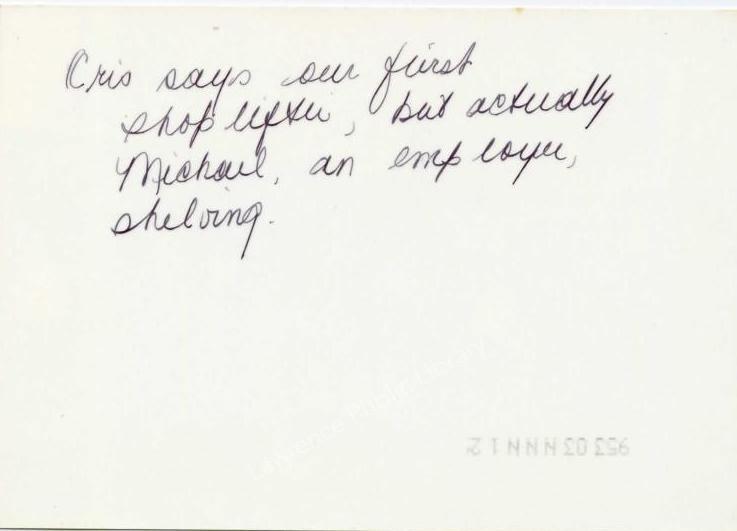 Cris says our first
shoplifter, but actually
Michael, an employee,
shelving.
Lawrence Public Library
953 03 NNNN 12